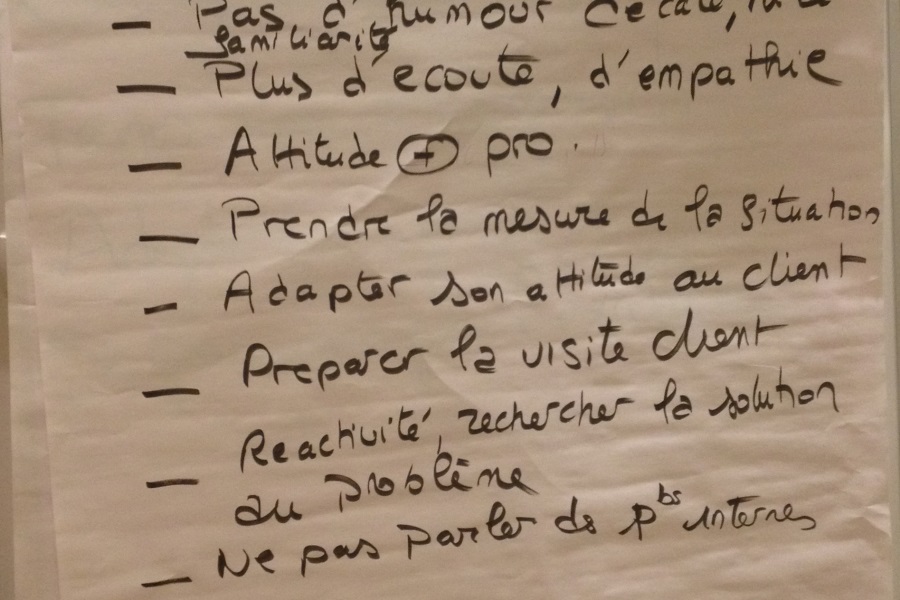 — Pas d'humour décalé,
familiarité
— Plus d'ecoute, d'empathie
— Attitude ⊕ pro.
— Prendre la mesure de la situation
— Adapter son attitude au client
— Preparer la visite client
— Reactivité, rechercher la solution
au problème
— Ne pas parler de pbs internes